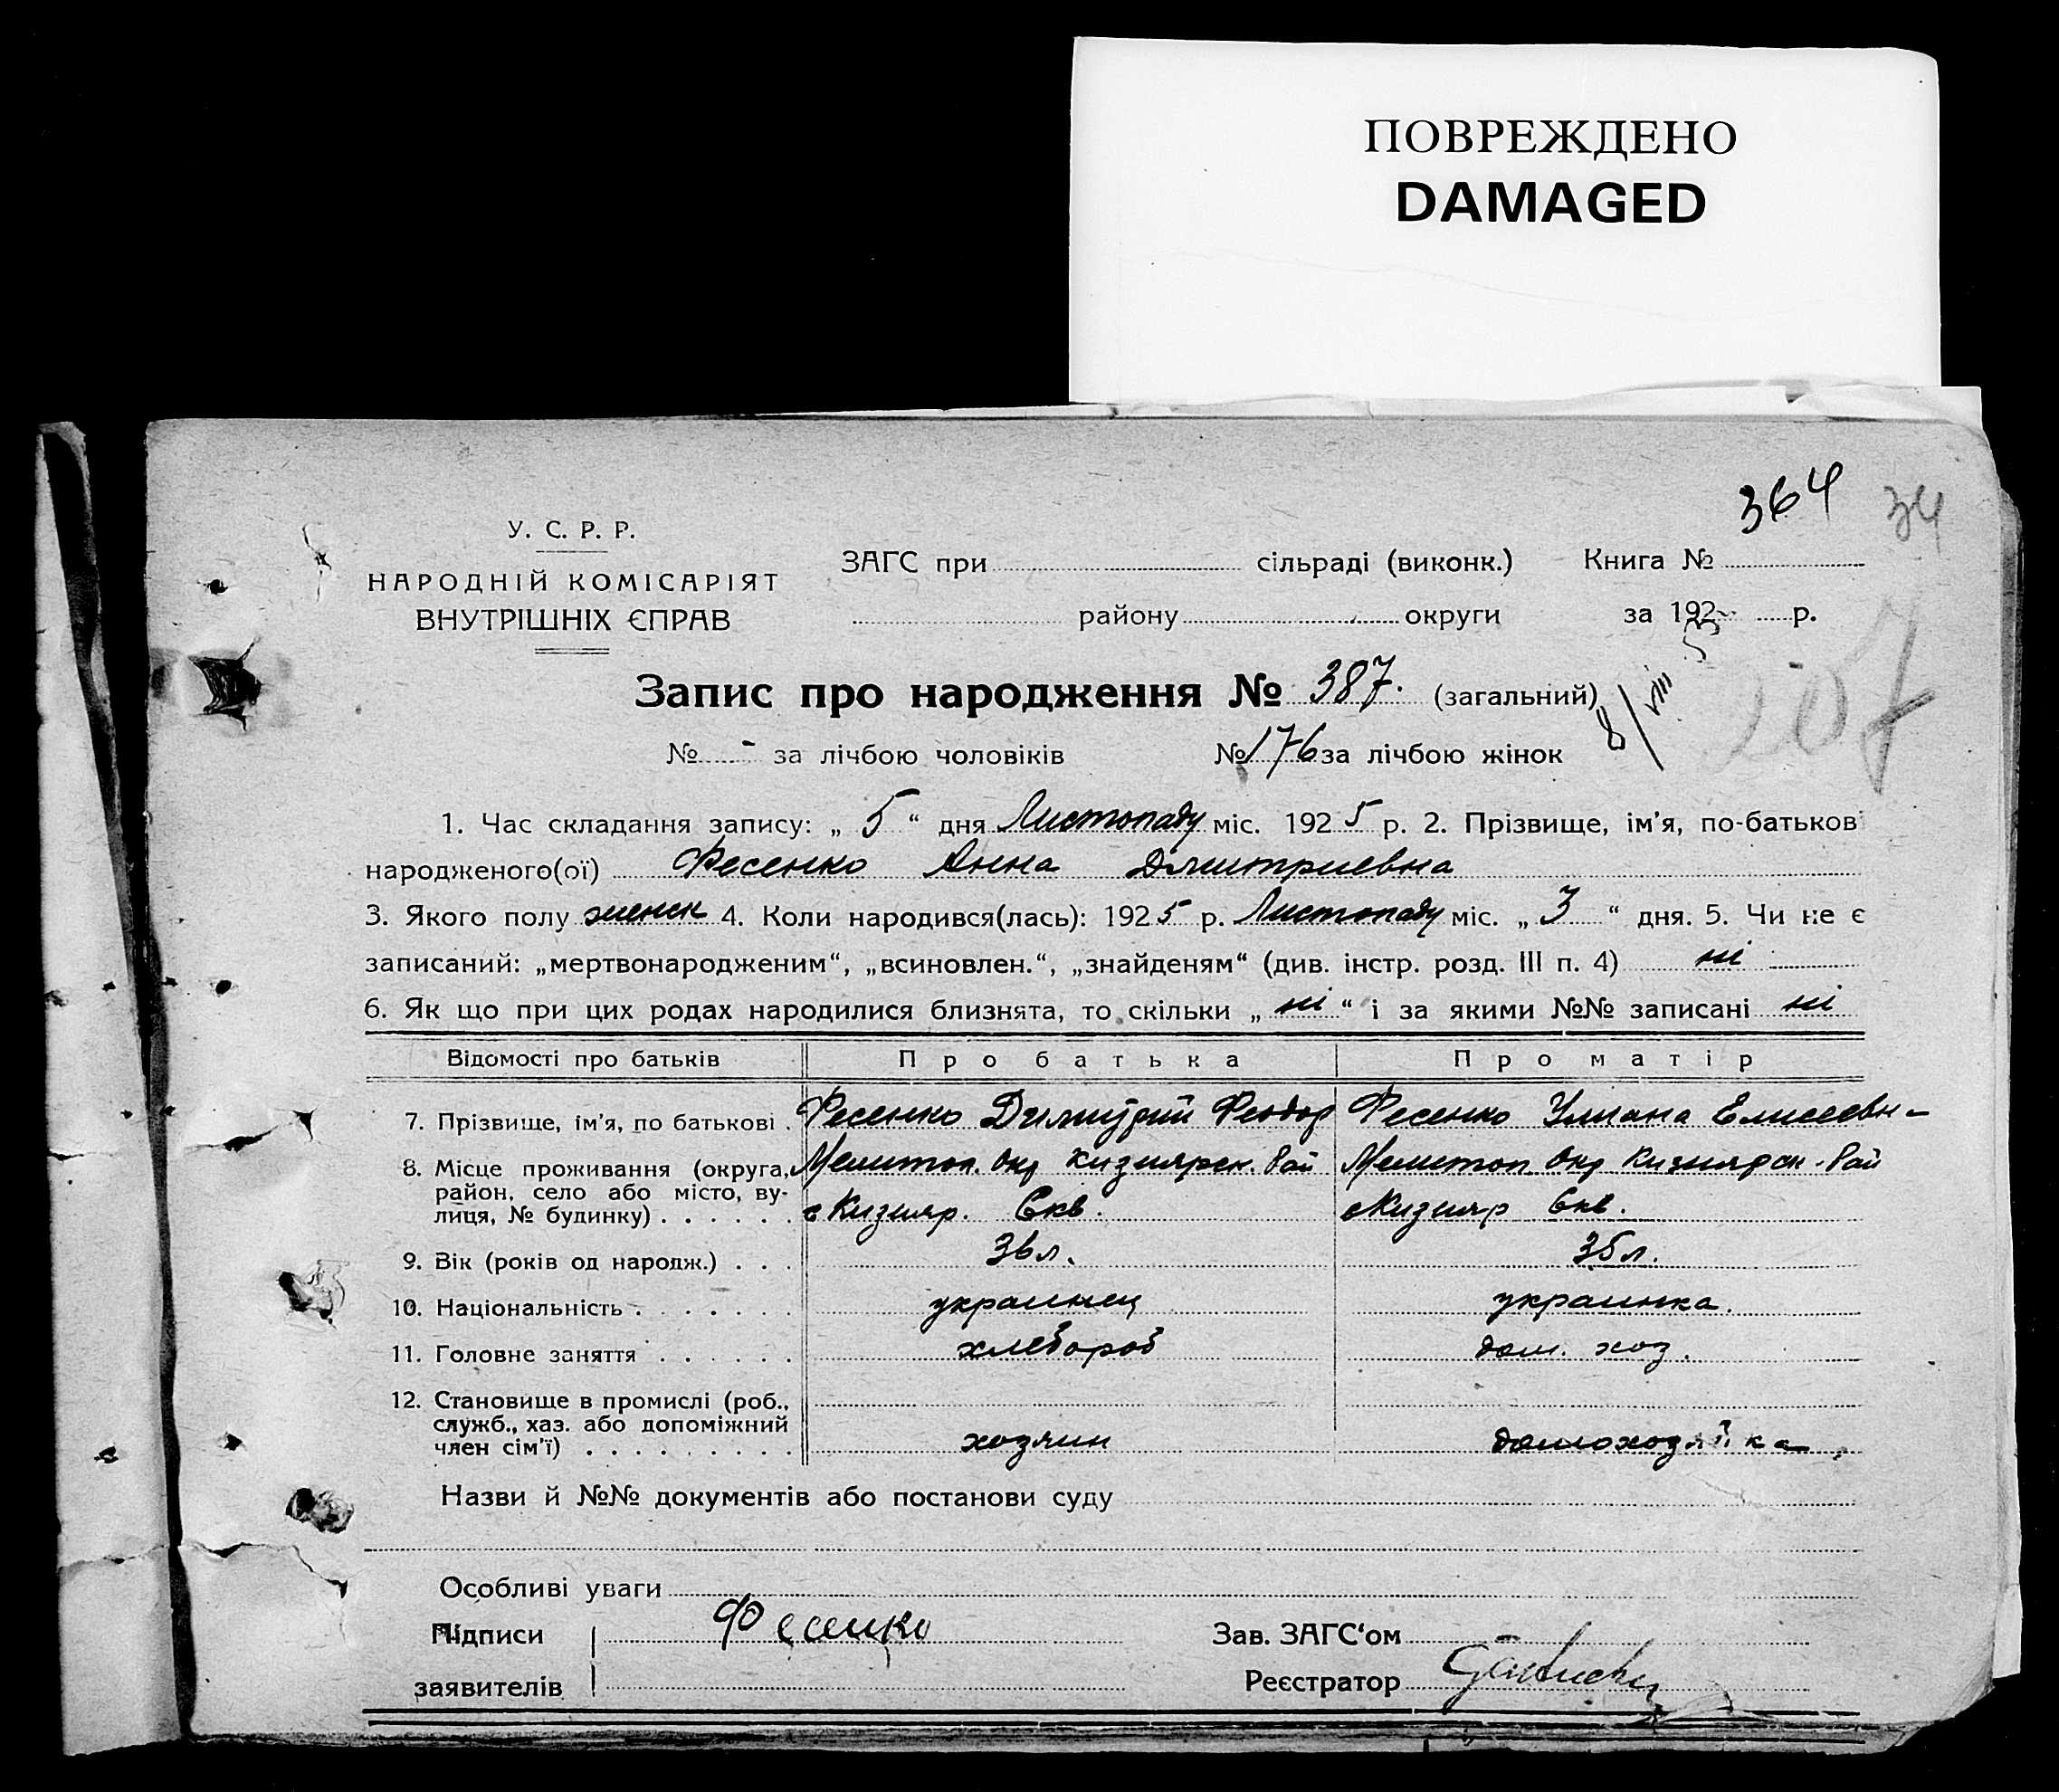 ПОВРЕЖДЕНО
DAMAGED
364 34
У. С. Р. Р.
НАРОДНІЙ КОМІСАРІЯТ
ВНУТРІШНІХ ЄПРАВ
ЗАГС при сільраді (виконк.) Книга №
району округи за 192 р.
5
Запис про народження № 387. (загальний)
8/VIII
107
№ - за лічбою чоловіків № 176 за лічбою жінок
1. Час складання запису: „ 5 “ дня Листопаду міс. 1925 р. 2. Прізвище, ім'я, по-батькові
народженого(ої) Фесенко Анна Дмитриевна
3. Якого полу женск 4. Коли народився(лась): 1925 р. Листопаду міс. „ 3 “ дня. 5. Чи не є
записаний: „мертвонародженим“, „всиновлен.“, „знайденям“ (див. інстр. розд. III п. 4) ні
6. Як що при цих родах народилися близнята, то скільки „ ні “ і за якими №№ записані ні
Відомості про батьків Про батька Про матір
7. Прізвище, ім'я, по батькові . Фесенко Димитрий Феодор Фесенко Улиана Елисеевн-
8. Місце проживання (округа, Мелитоп. Окр Кизиярск. Рай Мелитоп Окр Кизиярск. Рай
район, село або місто, ву-
лиця, № будинку) . . . . . . с Кизияр. Скв. с Кизияр Скв.
9. Вік (років од народж.) . . . 36 л. 35 л.
10. Національність . . . . . . . украинец украинка.
11. Головне заняття . . . . . . хлебороб дом. хоз.
12. Становище в промислі (роб.,
служб., хаз. або допоміжний
член сім'ї) . . . . . . . . . хозяин домохозяйка
Назви й №№ документів або постанови суду
Особливі уваги
Підписи Фесенко Зав. ЗАГС'ом
заявителів Реєстратор